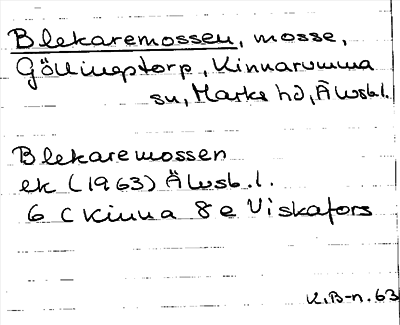 Blekaremossen, mosse,
Göllingstorp, Kinnarumma
sn, Marks hd, Älvsb.l.
Blekaremossen
ek (1963) Älvsb.l.
6 C Kinna 8 e Viskafors
K.B-n. 63